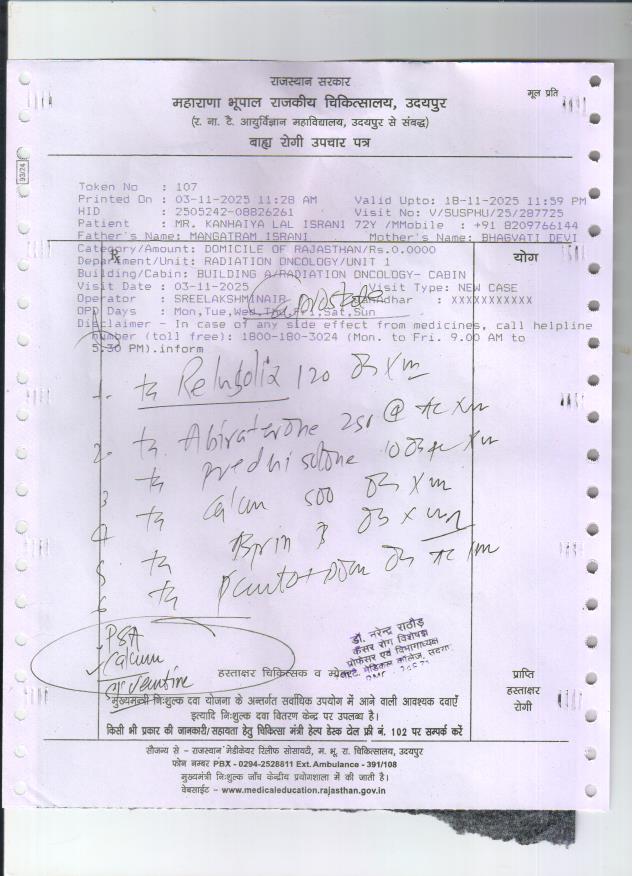 राजस्थान सरकार
मूल प्रति
महाराणा भूपाल राजकीय चिकित्सालय, उदयपुर
(र. ना. टै. आयुर्विज्ञान महाविद्यालय, उदयपुर से संबद्ध)
बाह्य रोगी उपचार पत्र
93/24
Token No : 107
Printed On : 03-11-2025 11:28 AM Valid Upto: 18-11-2025 11:59 PM
HID : 2505242-08826261 Visit No: V/SUSPHU/25/287725
Patient : MR. KANHAIYA LAL ISRANI 72Y /MMobile : +91 8209766144
Father's Name: MANGATRAM ISRANI Mother's Name: BHAGVATI DEVI
Category/Amount: DOMICILE OF RAJASTHAN/Rs.0.0000
Rx
योग
Department/Unit: RADIATION ONCOLOGY/UNIT 1
Building/Cabin: BUILDING A/RADIATION ONCOLOGY- CABIN
Visit Date : 03-11-2025 Visit Type: NEW CASE
Operator : SREELAKSHMINAIR : XXXXXXXXXXX
Prostate
OPD Days : Mon,Tue,Wed,Thu,Fri,Sat,Sun
Disclaimer - In case of any side effect from medicines, call helpline
number (toll free): 1800-180-3024 (Mon. to Fri. 9.00 AM to
5:30 PM).inform
1. Relugolix 120
2. Abiraterone 250
prednisolone
3 500
4
5
6
PSA
Calcium
डॉ. नरेन्द्र राठौड़
कैंसर रोग विशेषज्ञ
प्रोफेसर एवं विभागाध्यक्ष
हस्ताक्षर चिकित्सक व
प्राप्ति
हस्ताक्षर
रोगी
मुख्यमन्त्री निःशुल्क दवा योजना के अन्तर्गत सर्वाधिक उपयोग में आने वाली आवश्यक दवाएँ
इत्यादि निःशुल्क दवा वितरण केन्द्र पर उपलब्ध है।
किसी भी प्रकार की जानकारी/सहायता हेतु चिकित्सा मंत्री हेल्प डेस्क टोल फ्री नं. 102 पर सम्पर्क करें
सौजन्य से - राजस्थान मेडीकेयर रिलीफ सोसायटी, म. भू. रा. चिकित्सालय, उदयपुर
फोन नम्बर PBX - 0294-2528811 Ext. Ambulance - 391/108
मुख्यमंत्री निःशुल्क जाँच केन्द्रीय प्रयोगशाला में की जाती है।
वेबसाईट - www.medicaleducation.rajasthan.gov.in